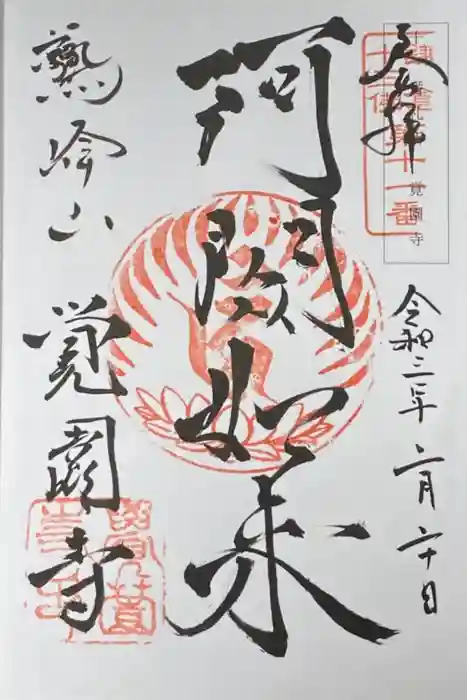 奉拝
十三佛
第十一番
覚園寺
阿閦如来
鷲峰山 覚園寺
令和三年 二月二十日